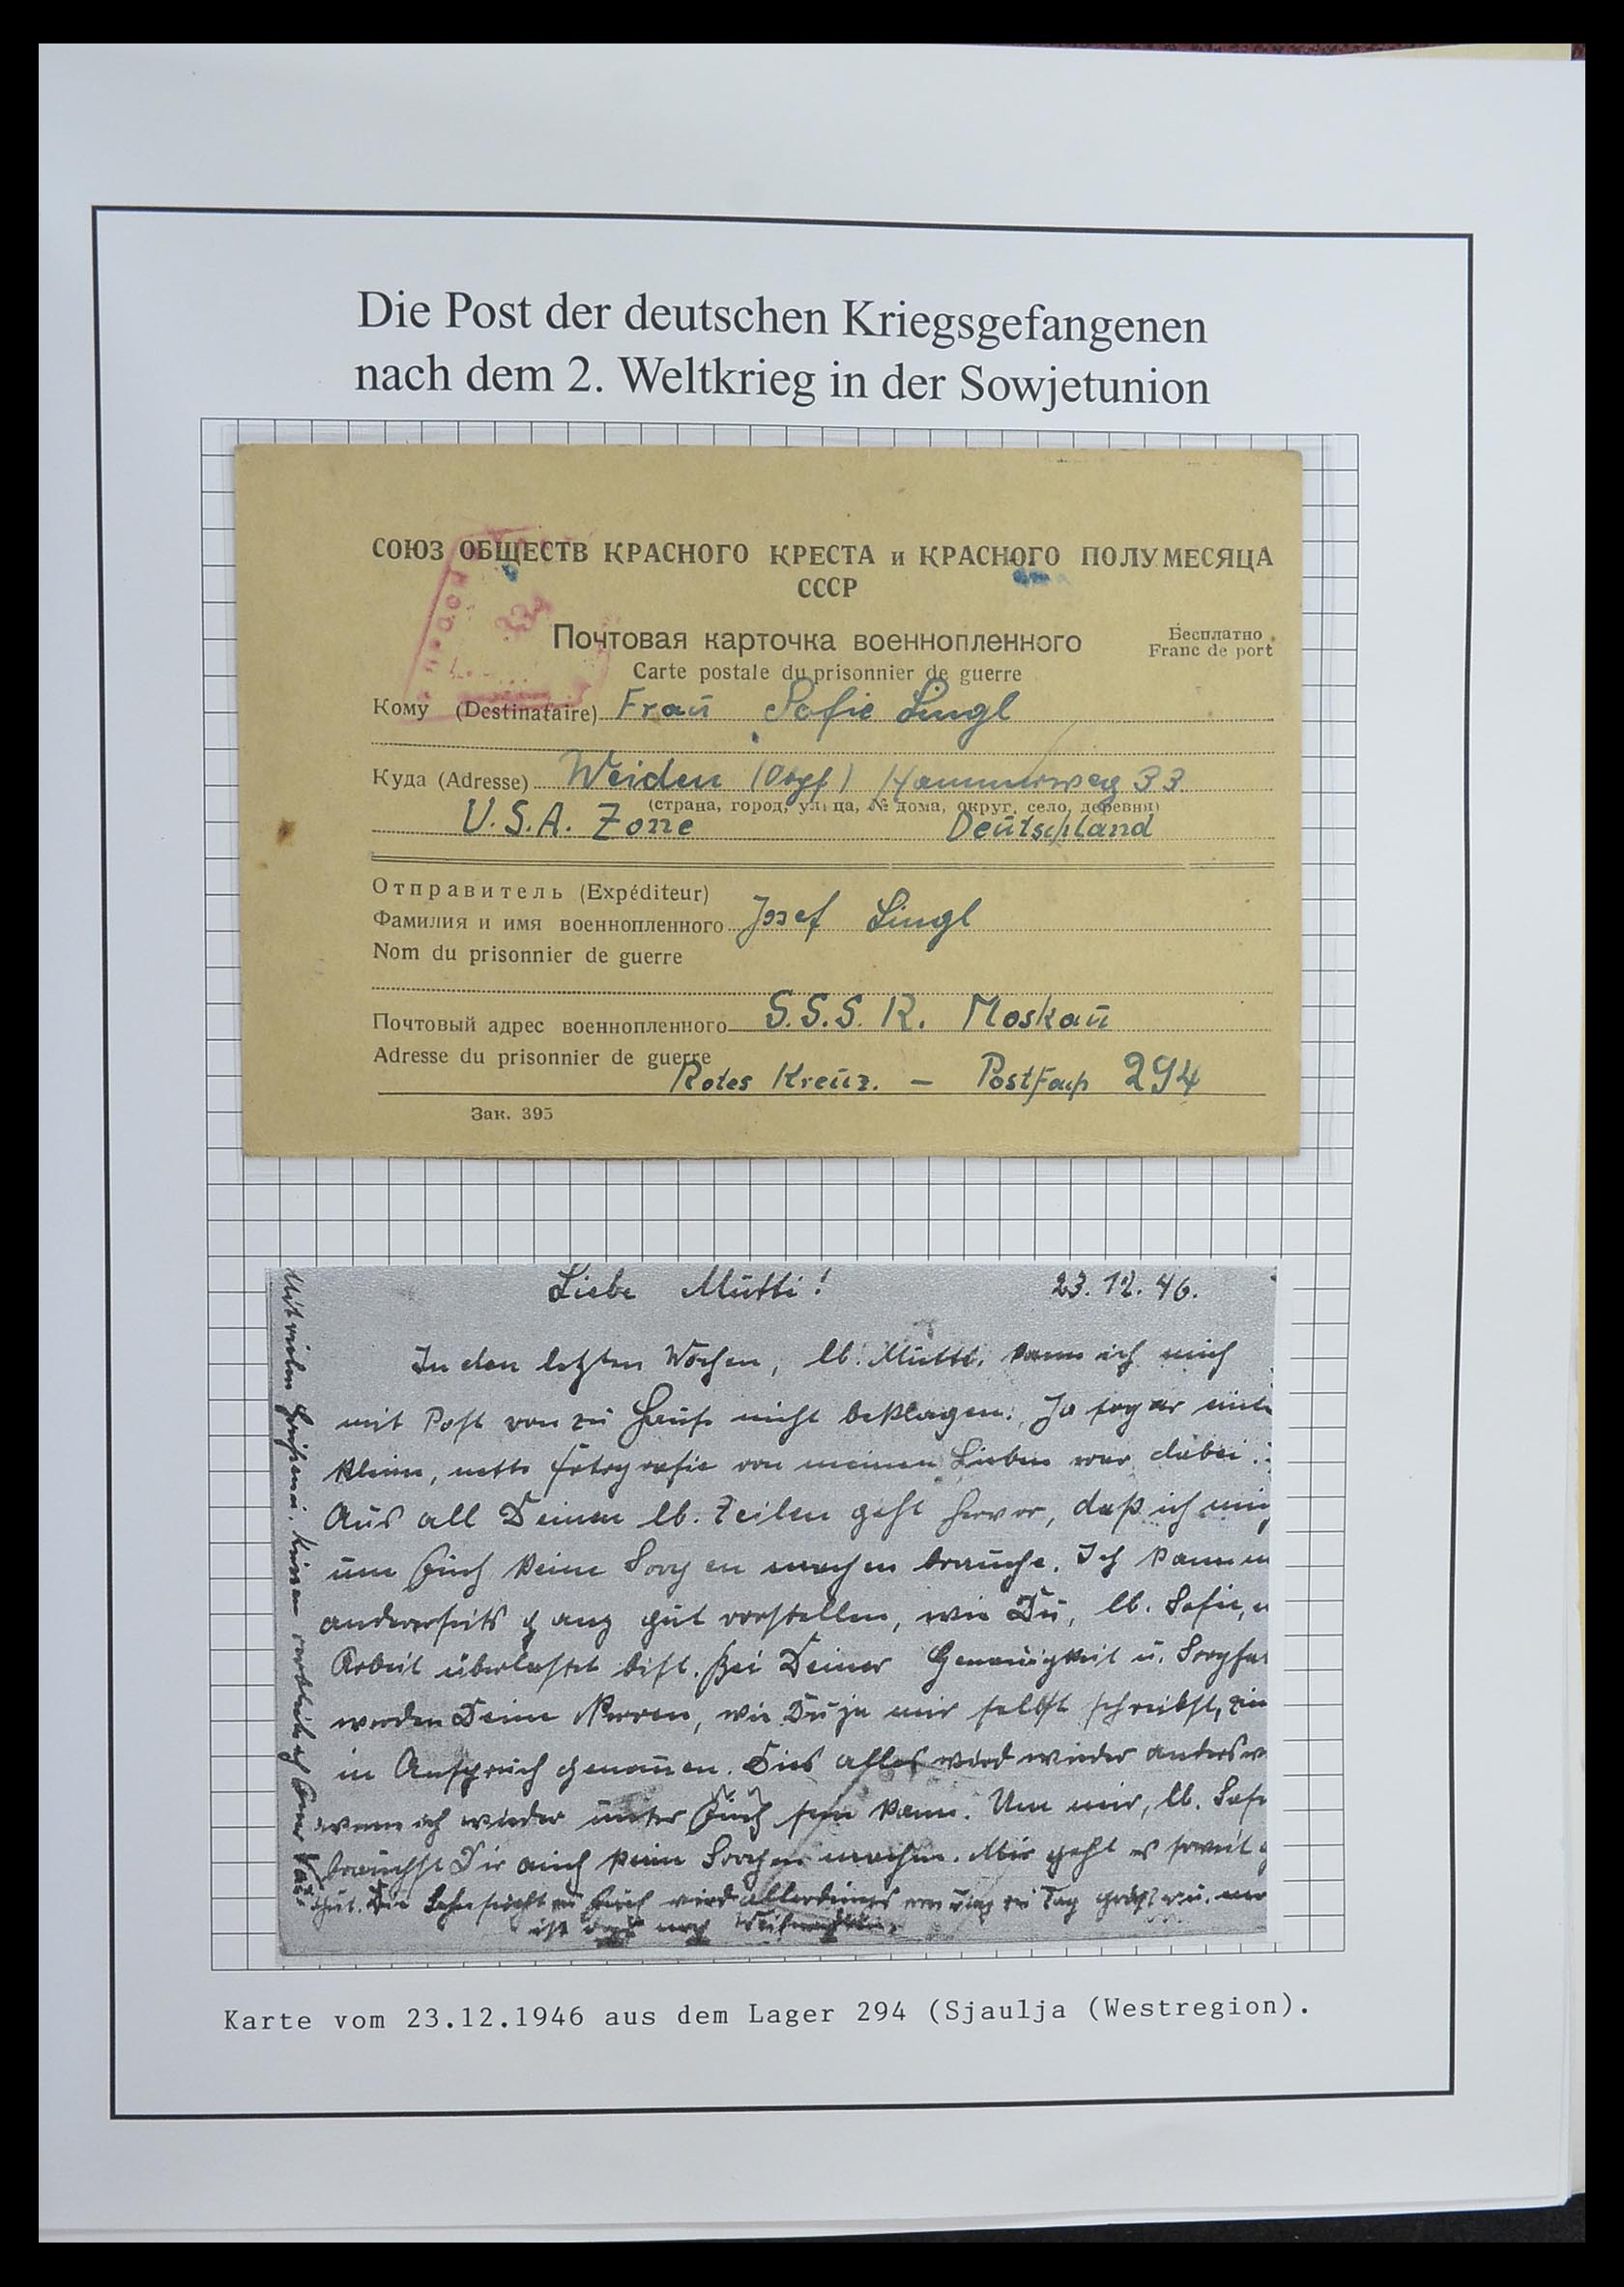 Die Post der deutschen Kriegsgefangenen
nach dem 2. Weltkrieg in der Sowjetunion
СОЮЗ ОБЩЕСТВ КРАСНОГО КРЕСТА и КРАСНОГО ПОЛУМЕСЯЦА
СССР
Почтовая карточка военнопленного
Бесплатно
Franc de port
Carte postale du prisonnier de guerre
Кому (Destinataire) Frau Sofie Lingl
Куда (Adresse) Weiden (Obpf) Hammerweg 33
(страна, город, улица, № дома, округ, село, деревня)
U.S.A. Zone Deutschland
Отправитель (Expéditeur)
Фамилия и имя военнопленного Josef Lingl
Nom du prisonnier de guerre
Почтовый адрес военнопленного S.S.S.R. Moskau
Adresse du prisonnier de guerre
Rotes Kreuz. – Postfach 294
Зак. 395
Liebe Mutti! 23.12.46.
In den letzten Wochen, lb. Mutti, kann ich mich
mit Post von zu Hause nicht beklagen. Ja sogar eine
kleine, nette Fotografie von meinen Lieben war dabei.
Aus all Deinen lb. Zeilen geht hervor, daß ich mich
um Euch keine Sorgen machen brauche. Ich kann
andererseits ganz gut vorstellen, wie Du, lb. Sofie,
Arbeit überlastet bist. Bei Deiner Genauigkeit u. Sorgfa
werden Deine Nerven, wie Du ja mir selbst schreibst,
in Anspruch genommen. Dies alles wird wieder anders
wenn ich wieder unter Euch sein kann. Um mir, lb. Sof
brauchst Dir auch keine Sorgen machen. Mir geht es soweit
gut. Die Sehnsucht zu Euch wird allerdings von Tag zu Tag größer u.
ist noch Weihnachten.
Mit vielen Grüßen u. Küssen verbleibe ich Euer Vati
Karte vom 23.12.1946 aus dem Lager 294 (Sjaulja (Westregion).